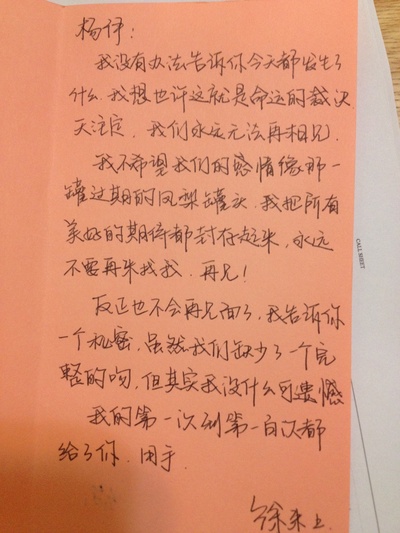 杨伊：
我没有办法告诉你今天都发生了
什么.我想也许这就是命运的裁决
天注定.我们永远无法再相见.
我不希望我们的感情像那一
罐过期的凤梨罐头.我把所有
美好的期待都封存起来,永远
不要再来找我.再见!
反正也不会再见面了,我告诉你
一个秘密.虽然我们缺少了一个完
整的吻,但其实我没什么可遗憾
我的第一次到第一百次都
给了你.用手.
徐来上
CALL SHEET